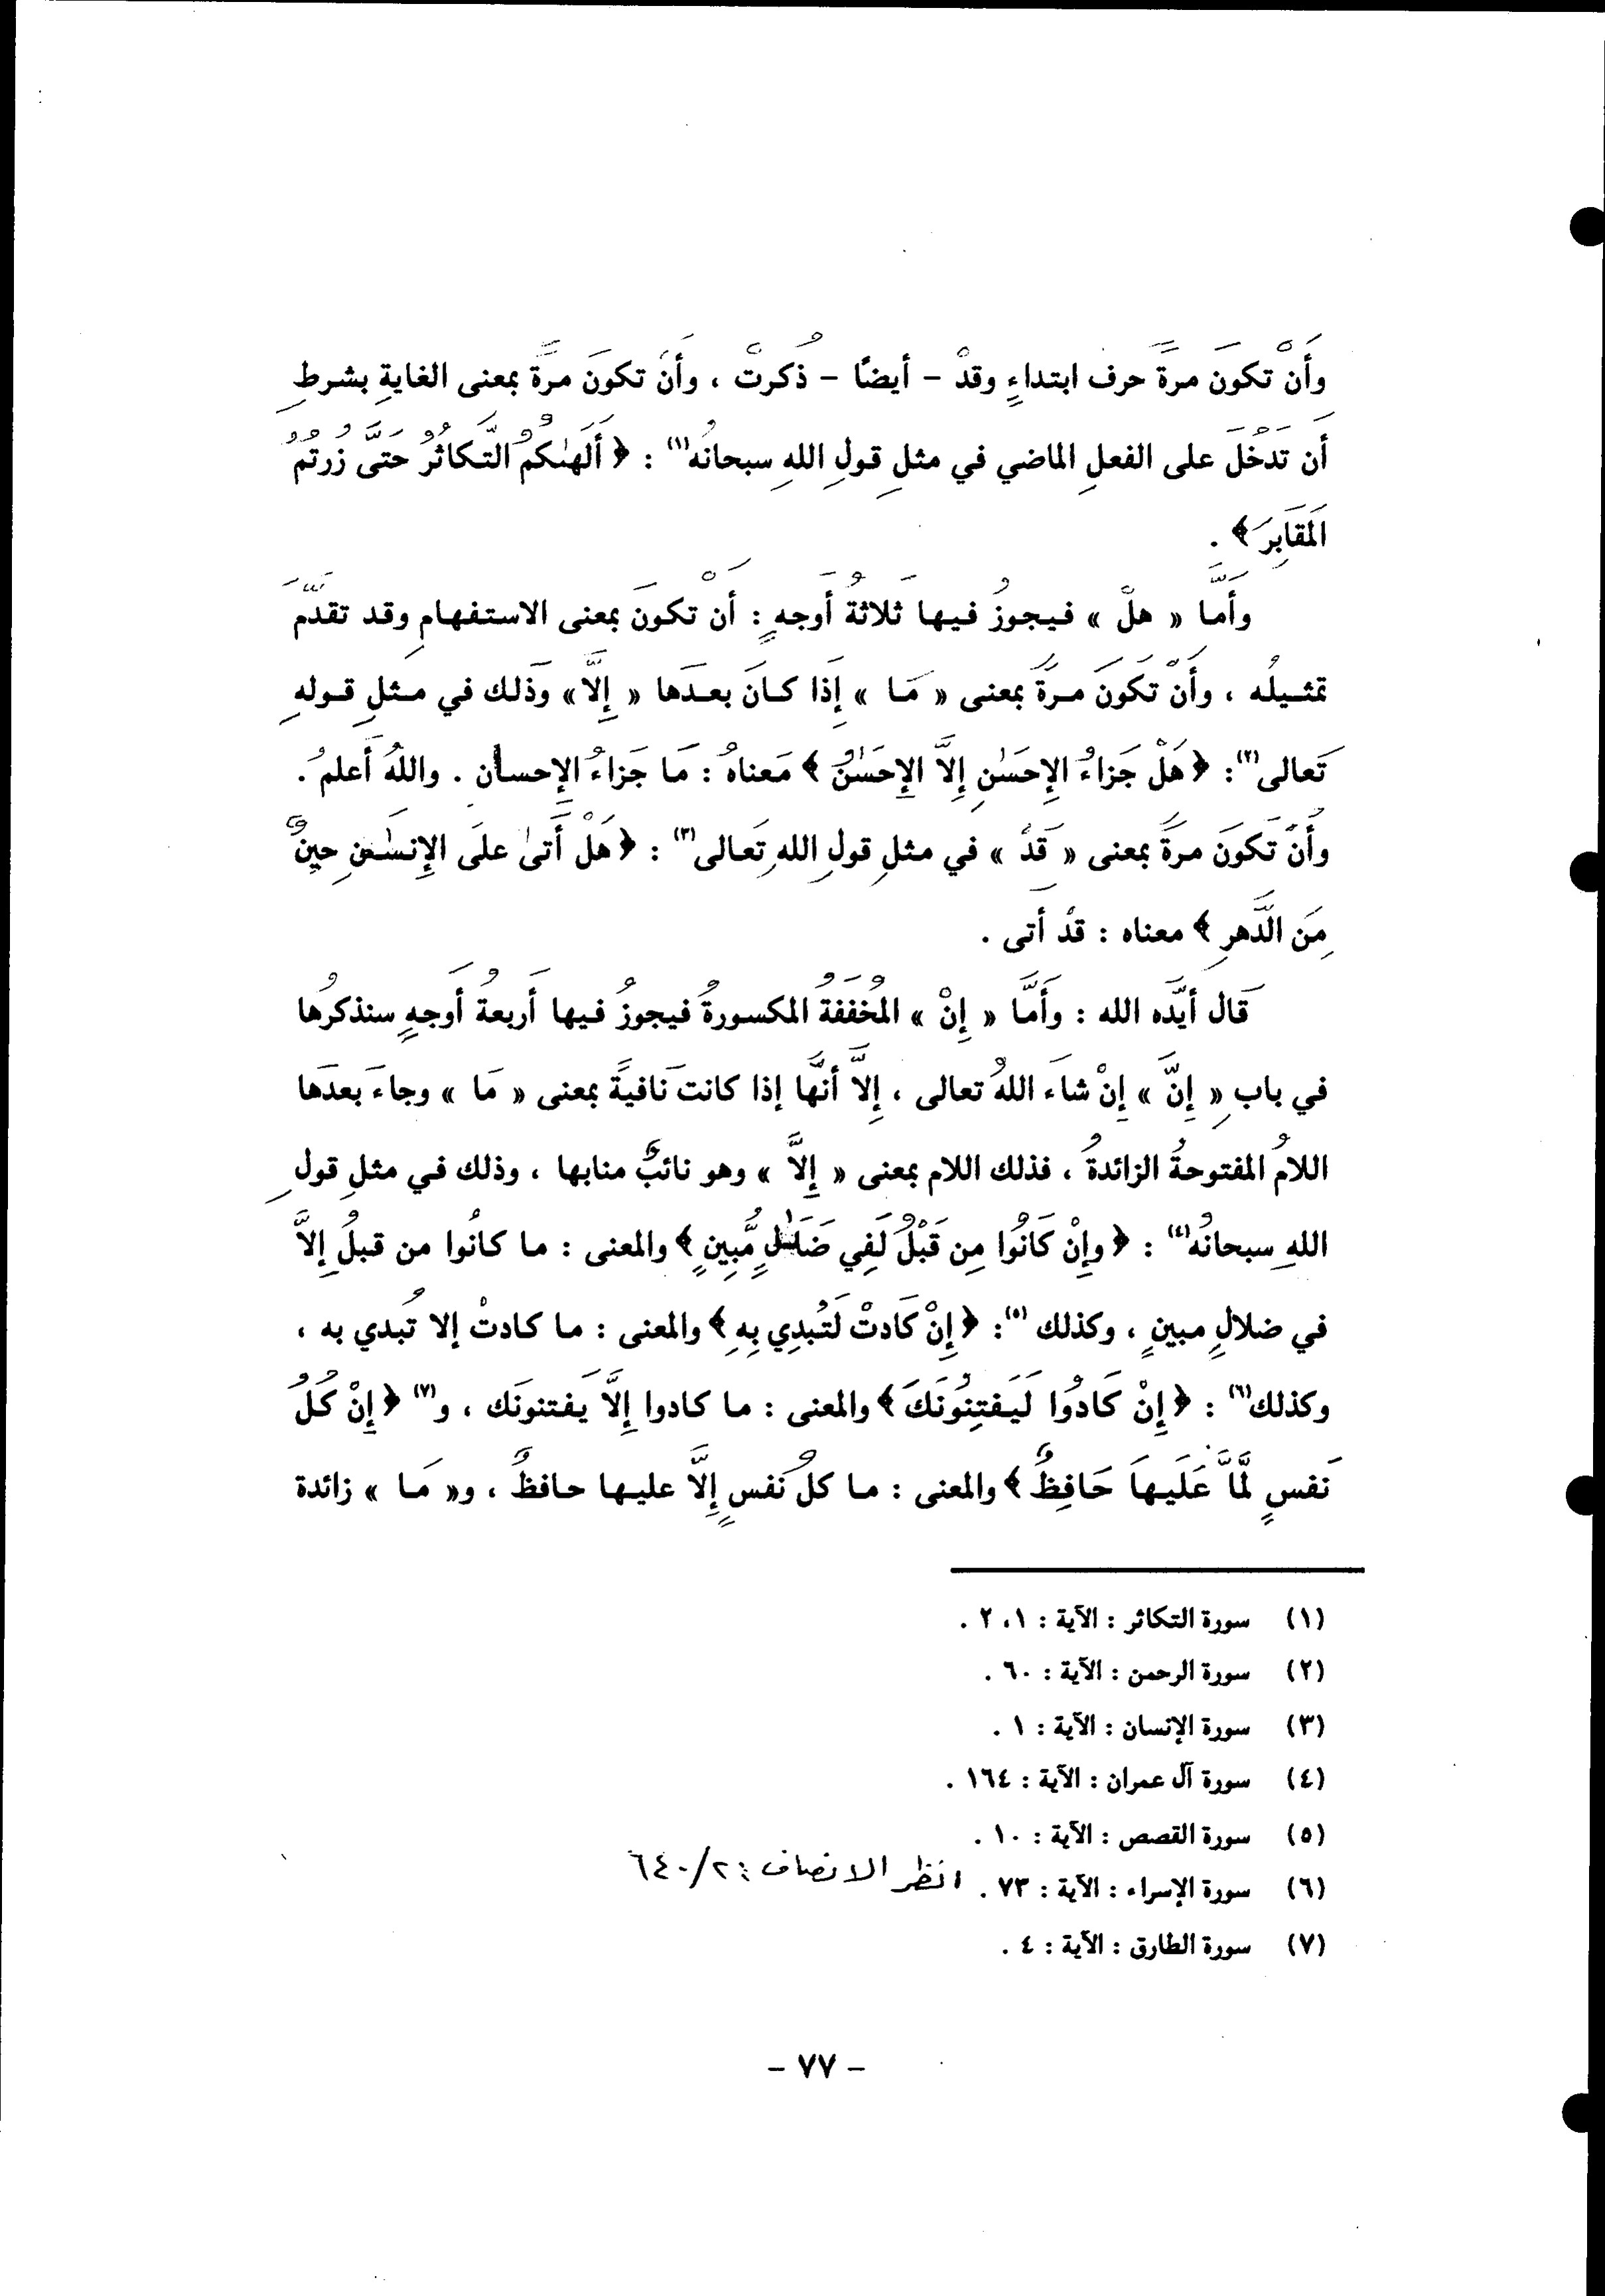 وأَنْ تكونَ مرةً حرف ابتداءٍ وقدْ – أيضًا – ذُكرتْ ، وأَنْ تكونَ مرةً بمعنى الغايةِ بشرطِ
أَن تدْخُلَ على الفعلِ الماضي في مثلِ قولِ اللهِ سبحانُه(١) : ﴿ أَلَهىٰكمُ التَّكاثُرُ حَتَّى زُرتُمُ
المَقَابِرَ ﴾ .
وأَمَّا « هلْ » فيجوزُ فيها ثلاثةُ أَوجهٍ : أَنْ تكونَ بمعنى الاستفهامِ وقد تقدَّمَ
تمثيلُه ، وأَنْ تكونَ مرةً بمعنى « مَا » إِذَا كانَ بعدَها « إِلَّا » وَذلك في مثلِ قولهِ
تَعالى(٢): ﴿ هَلْ جَزاءُ الإِحسَٰنِ إِلاَّ الإِحسَٰنُ ﴾ مَعناهُ : مَا جَزاءُ الإِحسان . واللهُ أَعلمُ .
وأَنْ تكونَ مرةً بمعنى « قَدْ » في مثلِ قولِ اللهِ تَعالى(٣) : ﴿ هَلْ أَتىٰ علَى الإِنسَٰنِ حينٌ
مِنَ الدَّهرِ ﴾ معناه : قدْ أتى .
قَال أيَّده الله : وأَمَّا « إِنْ » المُخَففةُ المكسورةُ فيجوزُ فيها أَربعةُ أَوجهٍ سنذكرُها
في بابِ « إِنَّ » إِنْ شاءَ اللهُ تعالى ، إِلاَّ أنَّها إذا كانتَ نافيةً بمعنى « مَا » وجاءَ بعدَها
اللامُ المفتوحةُ الزائدةُ ، فذلك اللام بمعنى « إِلاَّ » وهو نائبٌ منابها ، وذلك في مثلِ قولِ
اللهِ سبحانُه(٤) : ﴿ وإِنْ كَانُوا مِن قَبْلُ لَفِي ضَلَٰلٍ مُّبِينٍ ﴾ والمعنى : ما كانُوا من قبلُ إِلاَّ
في ضلالٍ مبينٍ ، وكذلك (٥): ﴿ إِنْ كَادتْ لَتُبدِي بِهِ ﴾ والمعنى : ما كادتْ إلا تُبدي به ،
وكذلك(٦) : ﴿ إِنْ كَادُوا لَيَفتِنُونَكَ ﴾ والمعنى : ما كادوا إِلَّا يَفتنونَك ، و(٧) ﴿ إِنْ كُلُّ
نَفسٍ لَّمَّا عَلَيهَا حَافِظٌ ﴾ والمعنى : ما كلُّ نَفسٍ إِلَّا عليها حافظٌ ، و« مَا » زائدة
(١) سورة التكاثر : الآية : ١، ٢ .
(٢) سورة الرحمن : الآية : ٦٠ .
(٣) سورة الإنسان : الآية : ١ .
(٤) سورة آل عمران : الآية : ١٦٤ .
(٥) سورة القصص : الآية : ١٠ .
(٦) سورة الإسراء : الآية : ٧٣ . انظر الانصاف : ٢/٦٤٠
(٧) سورة الطارق : الآية : ٤ .
– ٧٧ –